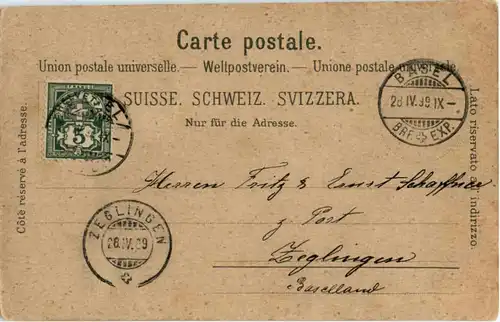 Carte postale.
Union postale universelle. — Weltpostverein. — Unione postale universale.
SUISSE. SCHWEIZ. SVIZZERA.
Nur für die Adresse.
Côté réservé à l'adresse.
Lato riservato all'indirizzo.
5
BASEL
28.IV.99.IX—
BRF. EXP.
ZEGLINGEN
28.IV.99
Herren Fritz & Ernst Schaffner
z. Post
Zeglingen
Baselland